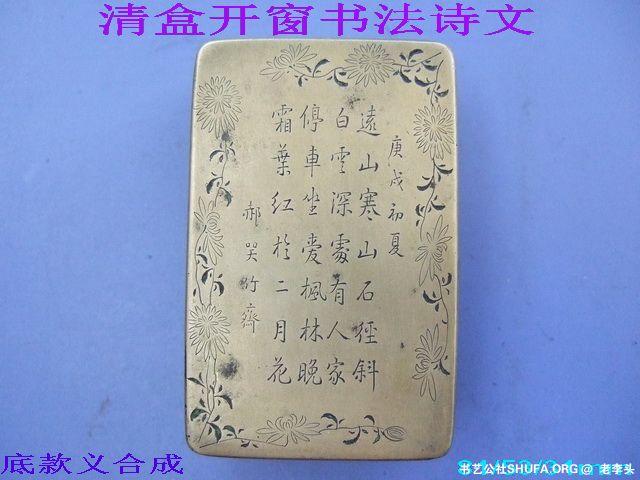 清盒开窗书法诗文
庚戌初夏
遠山寒山石徑斜
白雲深處有人家
停車坐愛楓林晚
霜葉紅於二月花
郝哭竹齊
底款义合成
书艺公社SHUFA.ORG @ 老李头